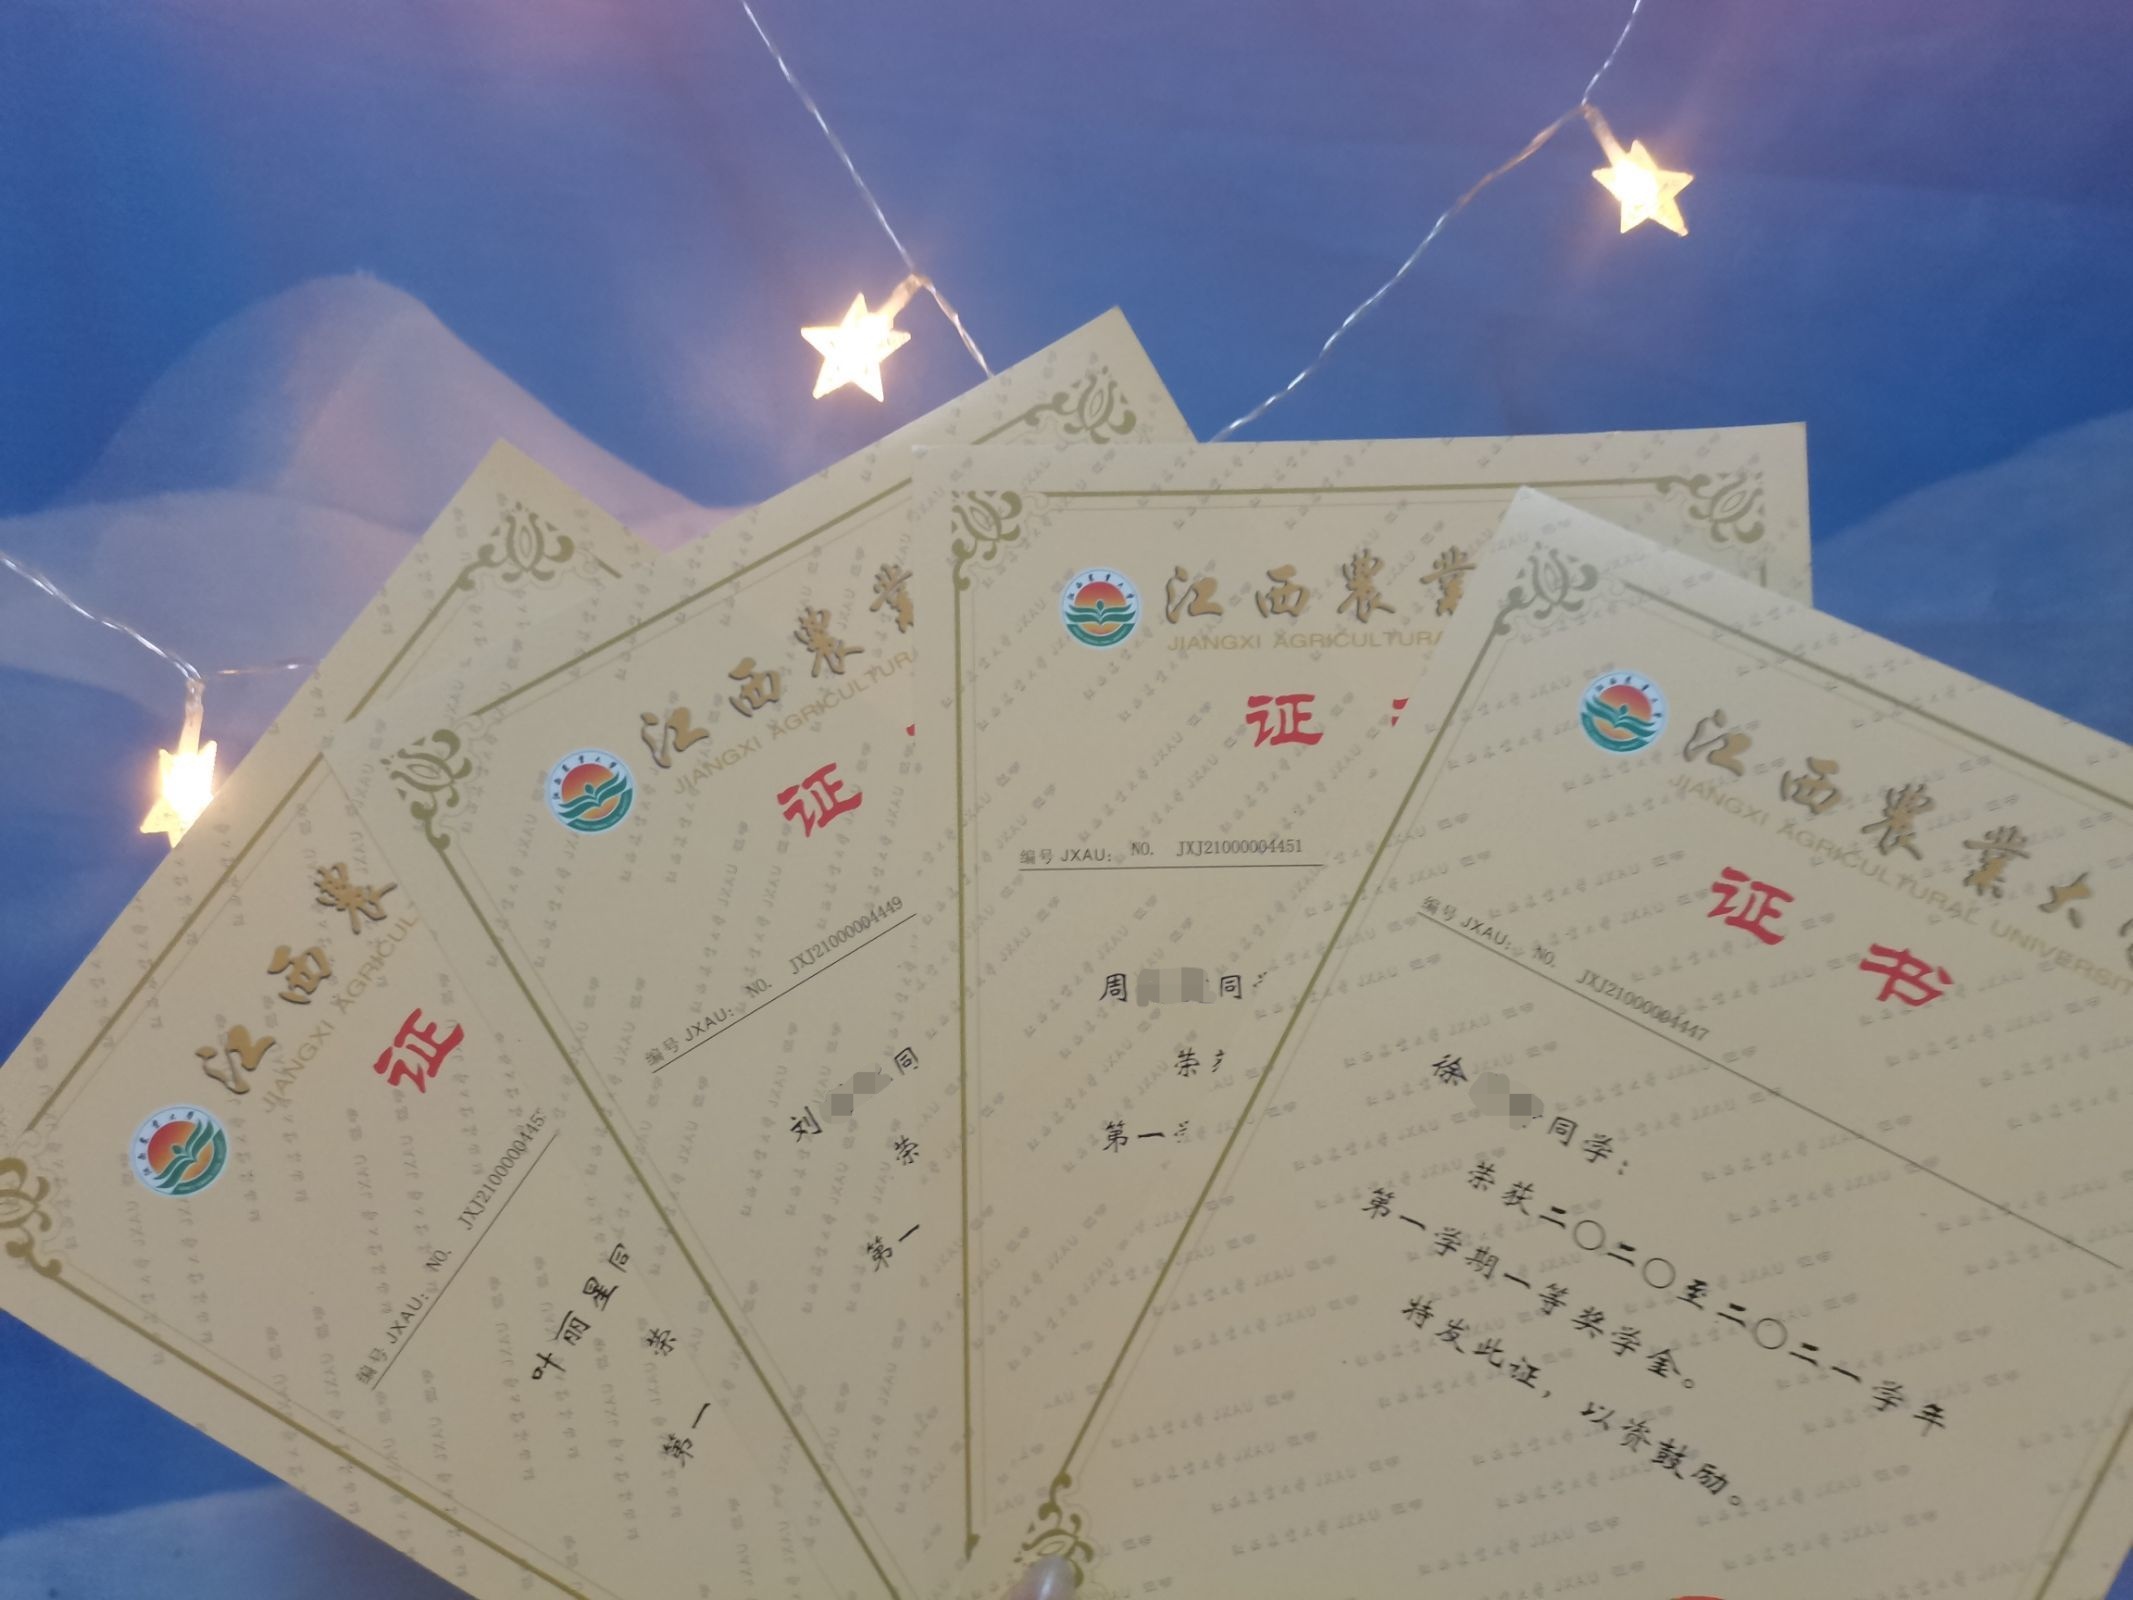 江西農
JIANGXI AGRICUL
证
编号 JXAU: NO. JXJ2100000445
叶丽星同
荣
第一
江西農業
JIANGXI AGRICULTURA
证
编号 JXAU: NO. JXJ21000004449
刘 同
荣
第一
江西農業
JIANGXI AGRICULTURA
证
编号 JXAU: NO. JXJ21000004451
周 同
荣
第一
江西農業大
JIANGXI AGRICULTURAL UNIVERSIT
证书
编号 JXAU: NO. JXJ21000004447
徐 同学:
荣获二〇二〇至二〇二一学年
第一学期一等奖学金。
特发此证,以资鼓励。